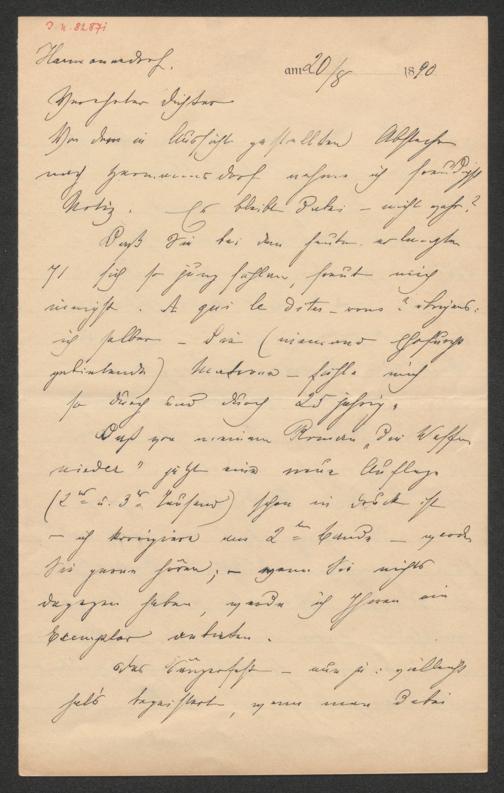 I. N. 82871
Harmannsdorf.
am 20/8 1890
Verehrter Dichter
Von dem in Aussicht gestellten Abstecher
nach Harmannsdorf nehme ich freudigst
Notiz. Es bleibt dabei – nicht wahr?
Daß Sie bei den heute erlangten
71 sich so jung fühlen, freut mich
innigst. A qui le dites-vous? übrigens:
ich selber – die (niemand Ehrfurcht
gebietende) Matrone – fühle mich
so durch und durch 25 jährig.
Daß von meinem Roman „die Waffen
nieder" jetzt eine neue Auflage
(2tes u. 3tes Tausend) schon in Druck ist
– ich korrigiere am 2ten Bande – werden
Sie gerne hören; – wenn Sie nichts
dagegen haben, werde ich Ihnen ein
Exemplar anbieten.
Das Sängerfest – nun ja: vielleicht
hat's begeistert, wenn man dabei